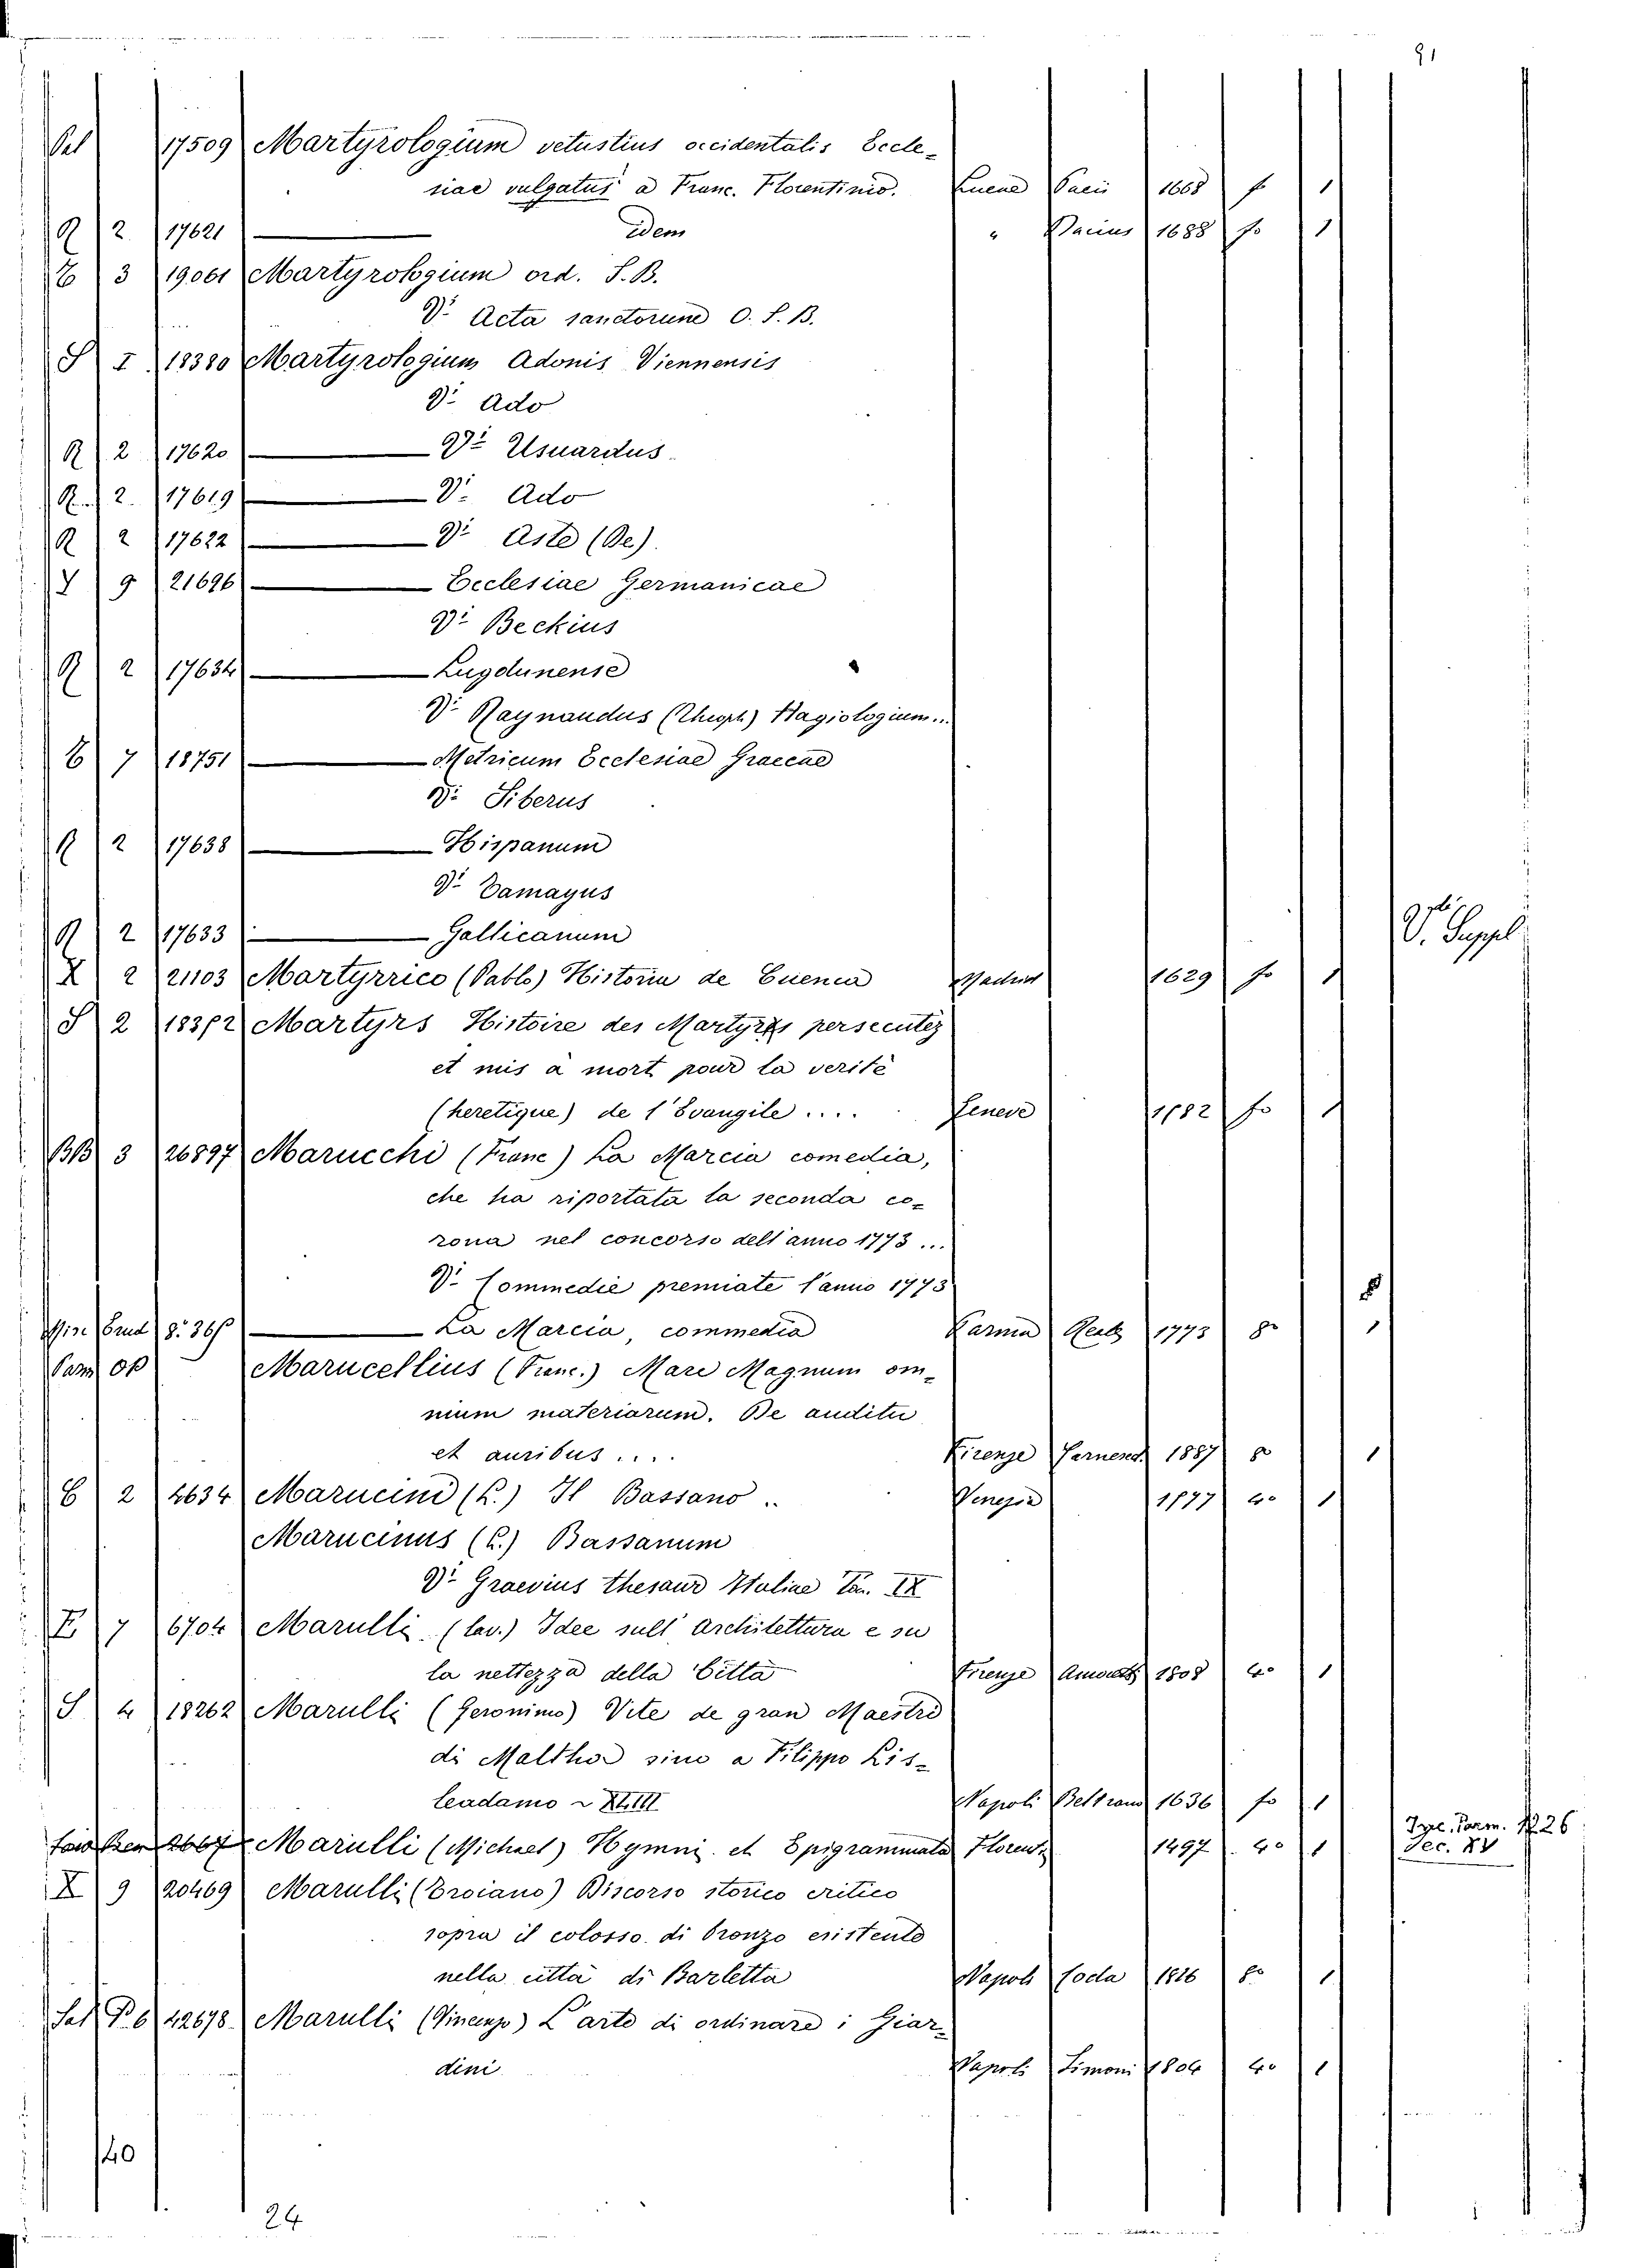 91
Pal 17509 Martyrologium vetustius occidentalis Eccle-
siae vulgatus a Franc. Florentinio. Lucae Pacii 1668 fo 1
R 2 17621 — idem " Pacius 1688 fo 1
3 19061 Martyrologium ord. S. B.
Vi Acta sanctorum O. S. B.
S I 18380 Martyrologium Adonis Viennensis
Vi Ado
R 2 17620 — Vi Usuardus
R. 2. 17619 — Vi Ado
R 2 17622 — Vi Aste (De).
Y 9 21696 — Ecclesiae Germanicae
Vi Beckius
R 2 17634 — Lugdunense
Vi Raynaudus (Theoph) Hagiologium...
7 18751 — Metricum Ecclesiae Graecae
Vi Siberus
R 2 17638 — Hispanum
Vi Damayus
R 2 17633 — Gallicanum
X 2 21103 Martyrrico (Pablo) Historia de Cuenca Madrid 1629 fo 1
V. Suppl
S 2 Martyrs Histoire des Martyres persecutez
et mis à mort pour la verité
(heretique) de l'Evangile .... Geneve 1582 fo 1
BB 3 26897 Marucchi (Franc) La Marcia comedia,
che ha riportata la seconda co-
rona nel concorso dell'anno 1773...
Vi Commedie premiate l'anno 1773
Misc Erud 8o 36 — La Marcia, commedia Parma Reale 1773 8o 1
Pam op Marucellius (Franc.) Mare Magnum om-
nium materiarum. De auditu
et auribus.... Firenze 1887 8o 1
2 4634 Marucini (L.) Il Bassano.. Venezia 1577 4o 1
Marucinus (L.) Bassanum
Vi Graevius thesaur Italiae Tom. IX
7 6704 Marulli (cav.) Idee sull'Architettura e su
la nettezza della Città Firenze 1808 4o 1
S 4 18262 Marulli (Geronimo) Vite de gran Maestri
di Maltha sino a Filippo Lis-
leadamo XLIII Napoli Beltrano 1636 fo 1
2667 Marulli (Michael) Hymni et Epigrammata Florent. 1497 4o 1
Tyc. Parm. 1226
Sec. XV
X 9 20469 Marulli (Troiano) Discorso storico critico
sopra il colosso di bronzo esistente
nella città di Barletta Napoli Coda 1816 8o 1
Sal P 6 42678 Marulli (Vincenzo) L'arte di ordinare i Giar-
dini Napoli Simoni 1804 4o 1
40
24